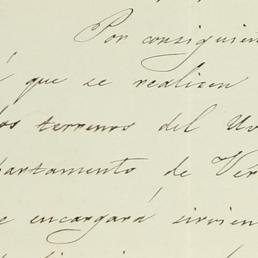 Por consiguien
á que se realicen
los terrenos del Uv
partamento de Ver
e encargará sirvien